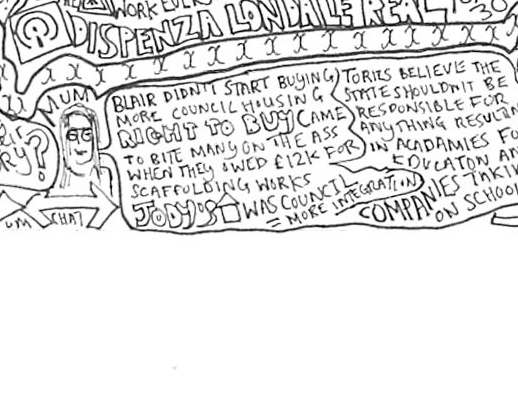 WORK EVER
DISPENZA LONDALE REAL
30
MUM
BLAIR DIDN'T START BUYING
MORE COUNCIL HOUSING
RIGHT TO BUY CAME
TO BITE MANY ON THE ASS
WHEN THEY OWED £12K FOR
SCAFFOLDING WORKS
JUDY'S WAS COUNCIL
= MORE INTEGRATION
TORIES BELIEVE THE
STATE SHOULDN'T BE
RESPONSIBLE FOR
ANYTHING RESULTIN
IN ACADAMIES FO
EDUCATON AN
COMPANIES TAKIN
ON SCHOOL
RY?
UM
CHAT